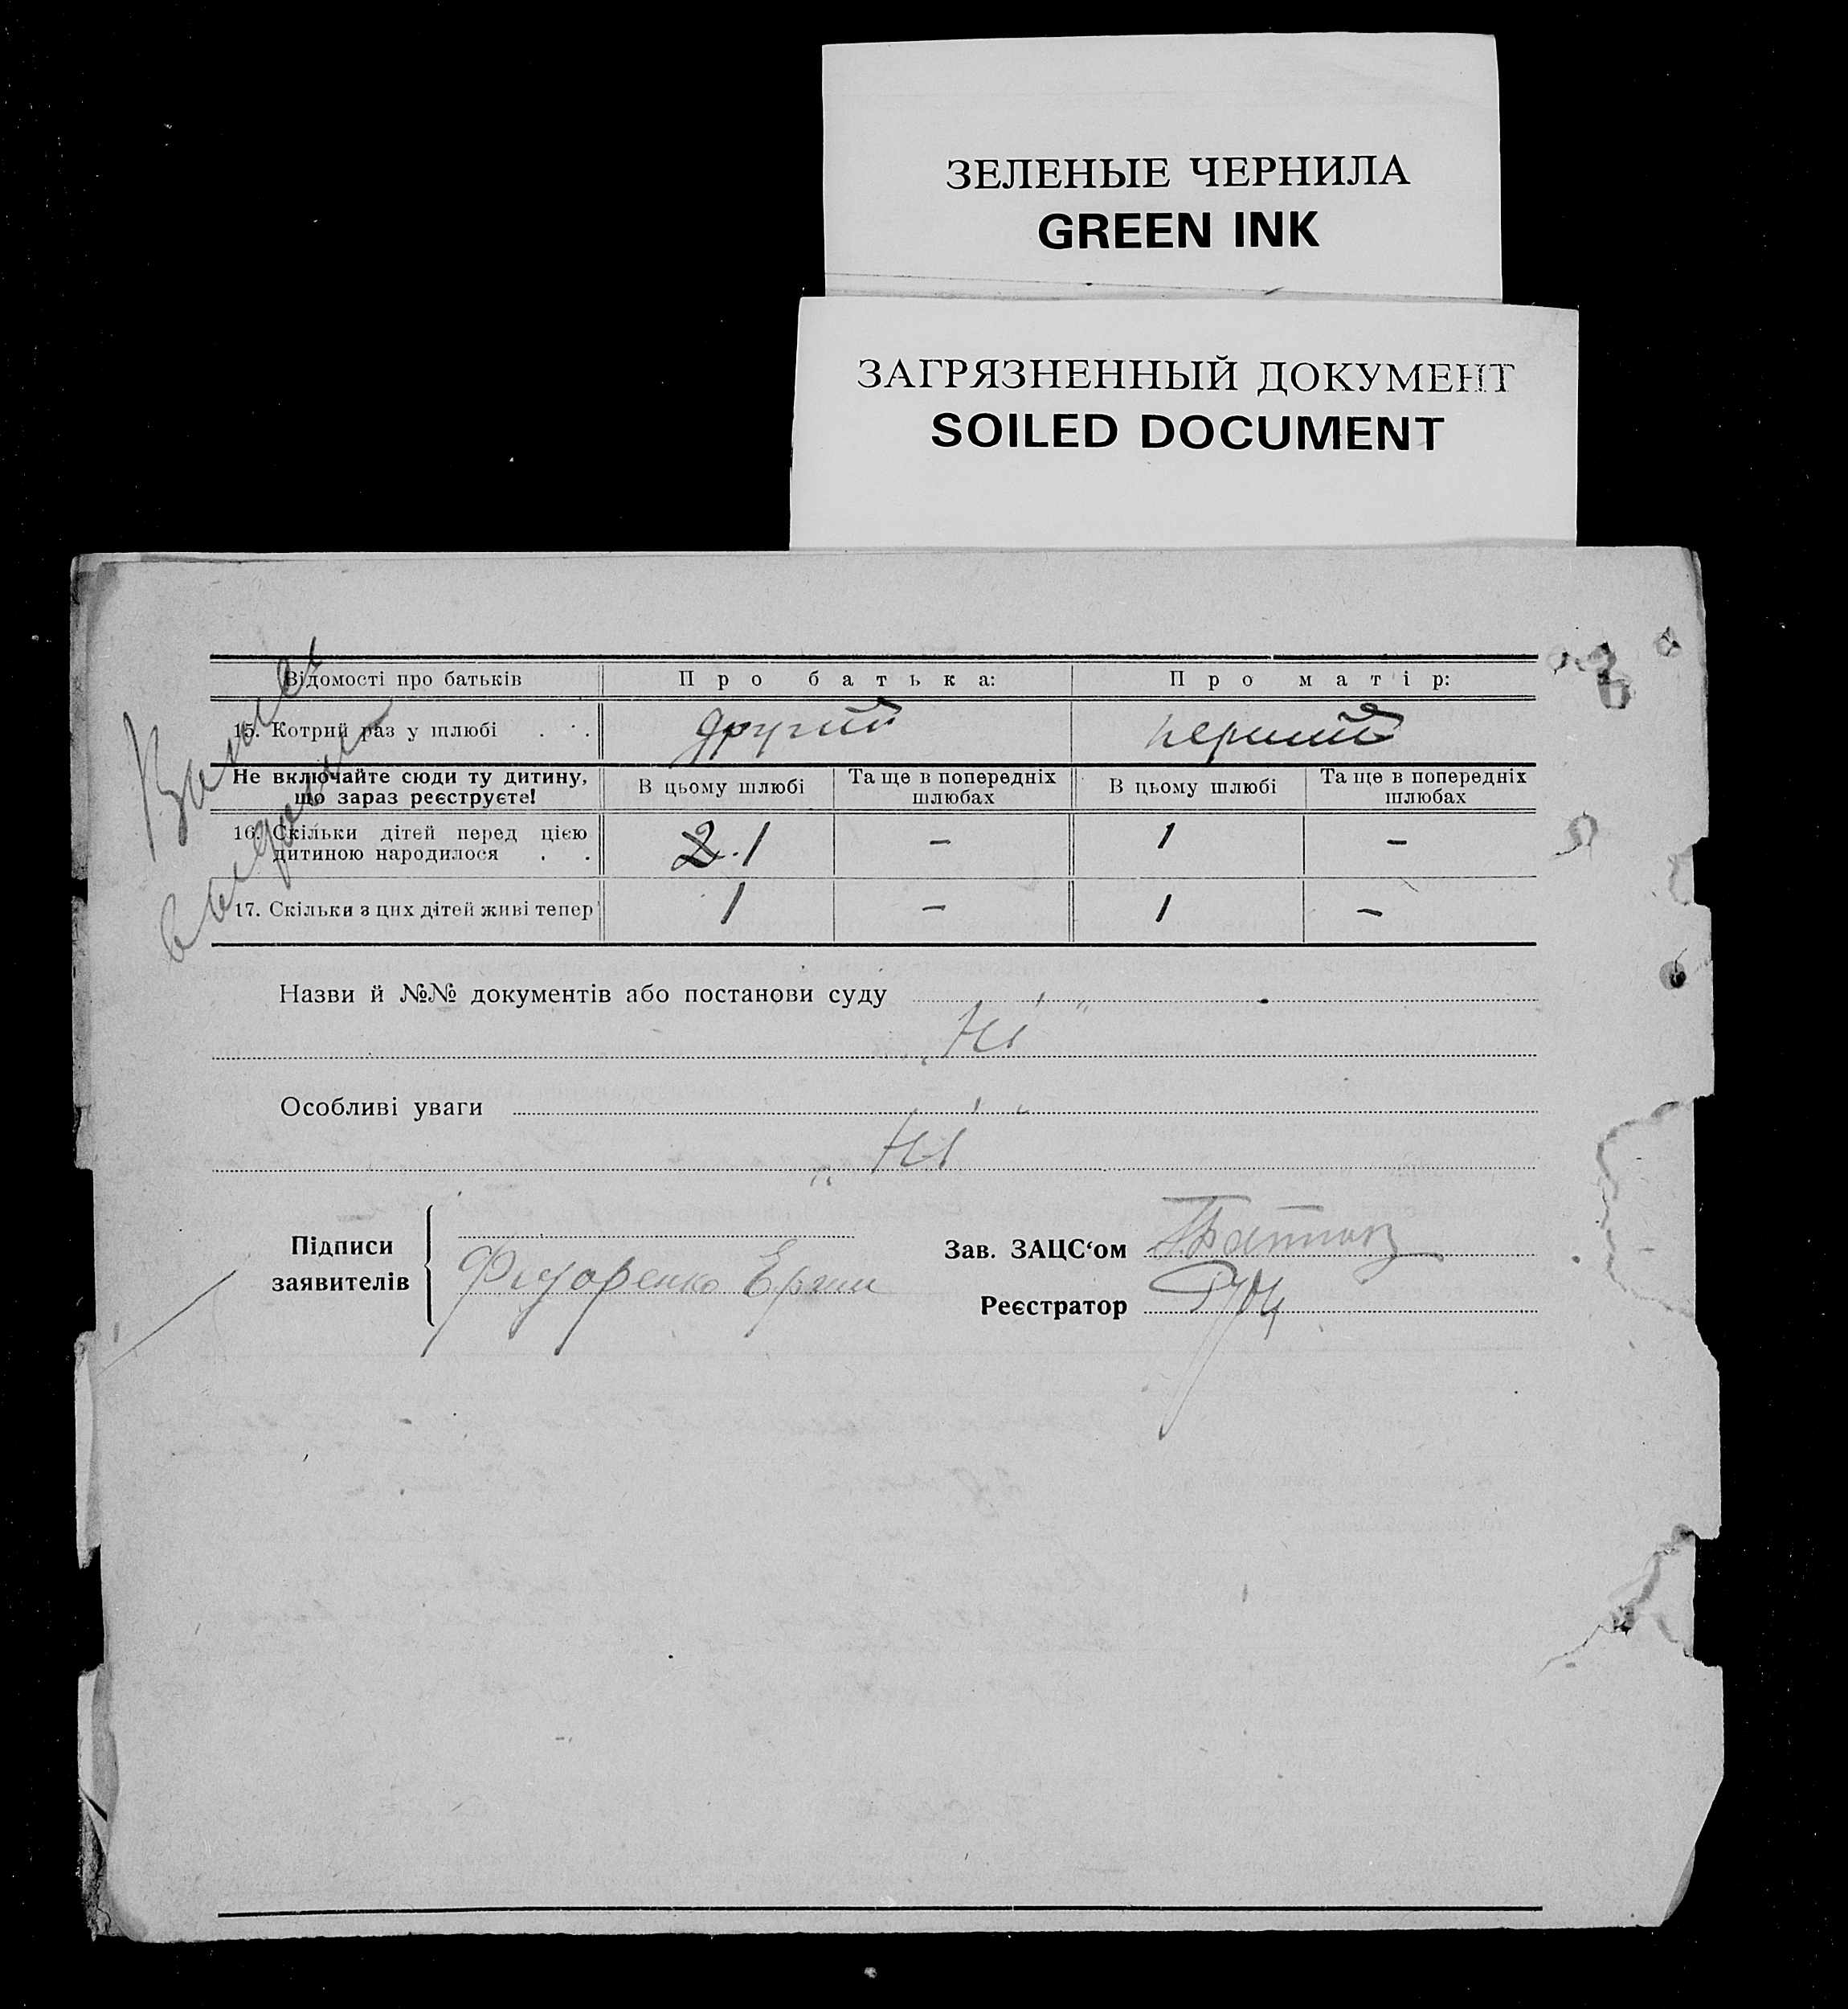 ЗЕЛЕНЫЕ ЧЕРНИЛА
GREEN INK
ЗАГРЯЗНЕННЫЙ ДОКУМЕНТ
SOILED DOCUMENT
Відомості про батьків Про батька: Про матір:
15. Котрий раз у шлюбі . . другий перший
Не включайте сюди ту дитину, що зараз реєструєте! В цьому шлюбі Та ще в попередніх шлюбах В цьому шлюбі Та ще в попередніх шлюбах
16. Скільки дітей перед цією дитиною народилося . . 2. 1 — 1 —
17. Скільки з цих дітей живі тепер 1 — 1 —
Назви й №№ документів або постанови суду
„Ні"
Особливі уваги
„Ні"
Підписи заявителів
Федоренко
Зав. ЗАЦС'ом
Реєстратор